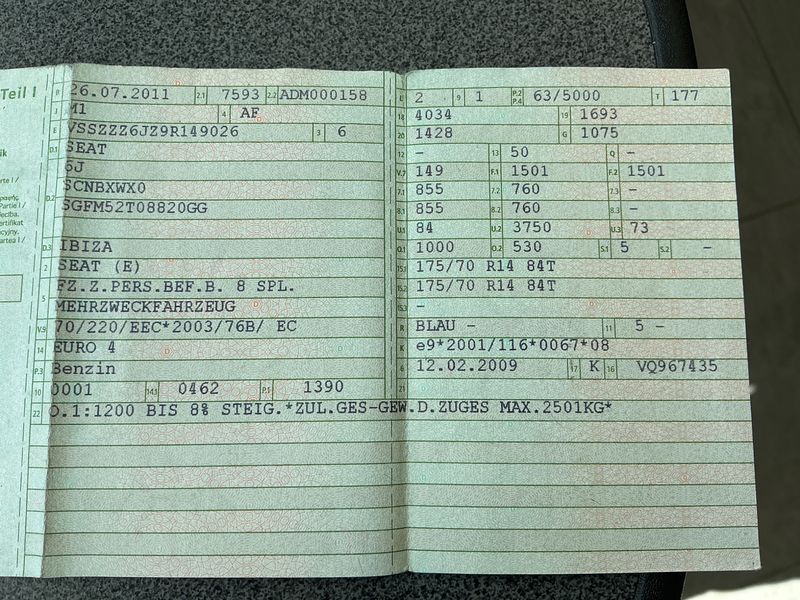 Teil I
B 26.07.2011 2.1 7593 2.2 ADM000158
M1 4 AF
E VSSZZZ6JZ9R149026 3 6
D.1 SEAT
6J
D.2 SCNBXWX0
SGFM52T08820GG
D.3 IBIZA
2 SEAT (E)
5 FZ.Z.PERS.BEF.B. 8 SPL.
MEHRZWECKFAHRZEUG
V.9 70/220/EEC*2003/76B/ EC
14 EURO 4
P.3 Benzin
10 0001 14.1 0462 P.1 1390
22 O.1:1200 BIS 8% STEIG.*ZUL.GES-GEW.D.ZUGES MAX.2501KG*
2 9 1 P.2 P.4 63/5000 T 177
18 4034 19 1693
20 1428 G 1075
12 - 13 50 Q -
V.7 149 F.1 1501 F.2 1501
7.1 855 7.2 760 7.3 -
8.1 855 8.2 760 8.3 -
U.1 84 U.2 3750 U.3 73
O.1 1000 O.2 530 S.1 5 S.2 -
15.1 175/70 R14 84T
15.2 175/70 R14 84T
15.3 -
R BLAU - 11 5 -
K e9*2001/116*0067*08
6 12.02.2009 17 K 16 VQ967435
21